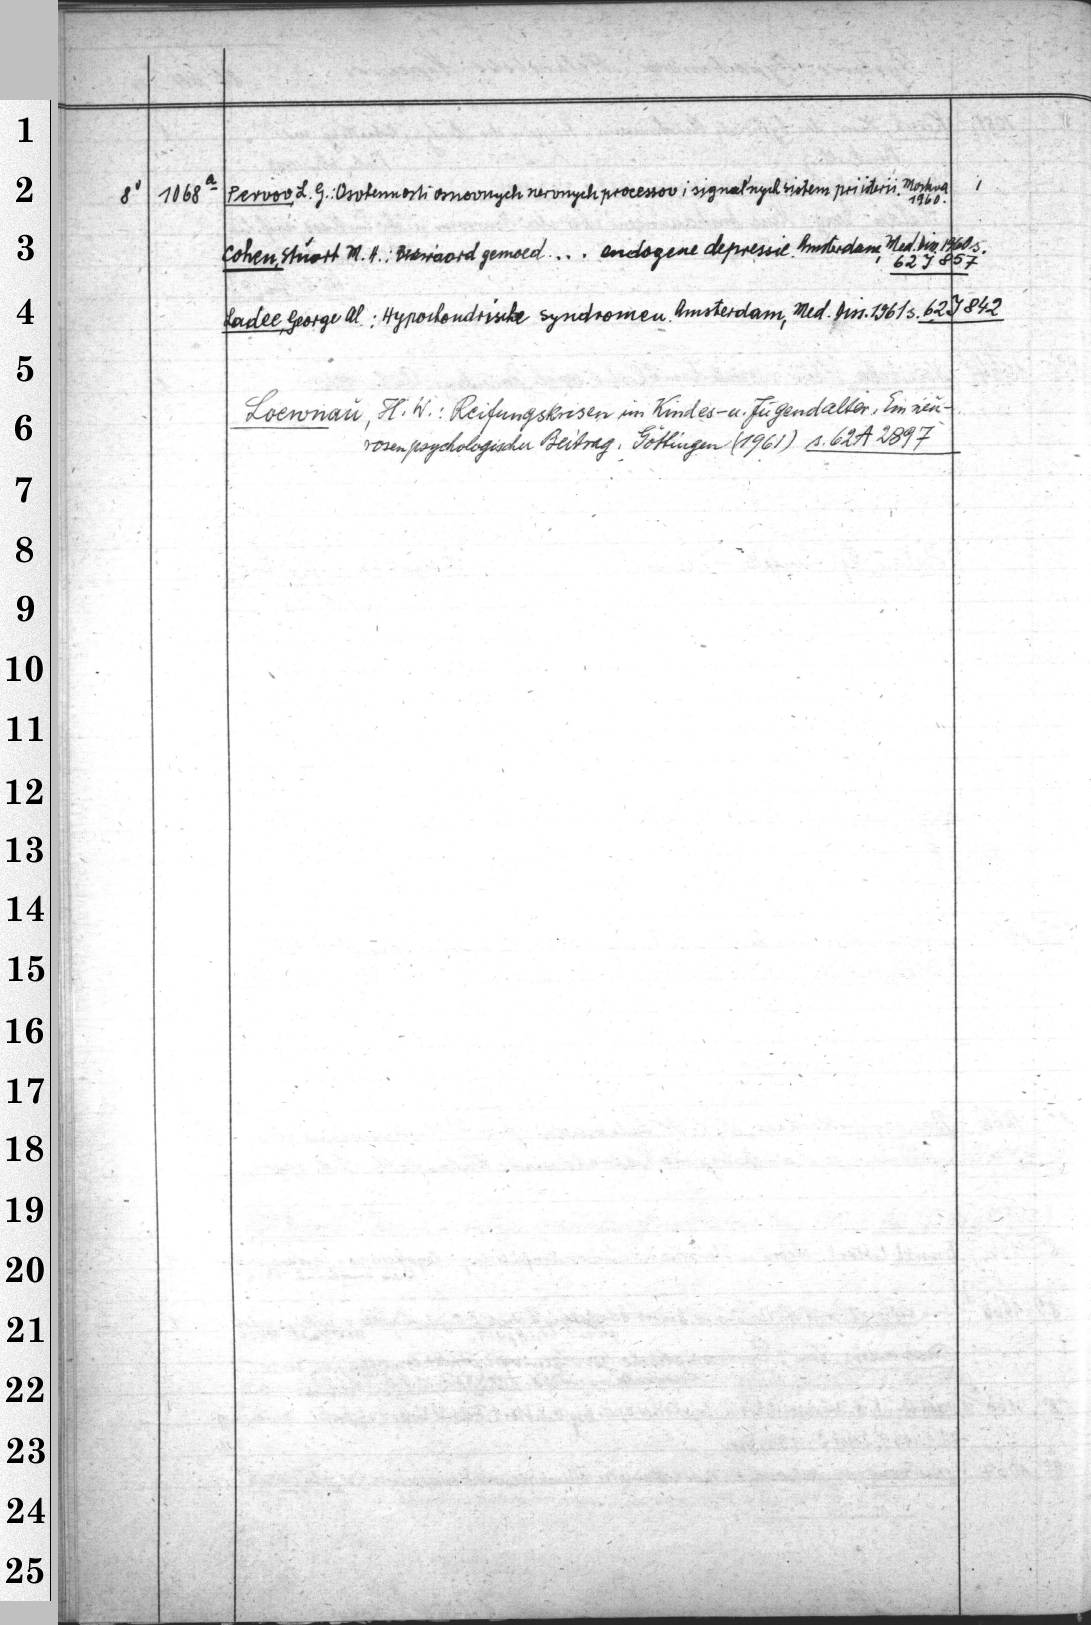 1
2
3
4
5
6
7
8
9
10
11
12
13
14
15
16
17
18
19
20
21
22
23
24
25
8' 1068a Pervov, L. G.: Osobennosti osnovnych nervnych processov i signal'nych sistem pri isterii. Moskva 1960. 1
Cohen, Stuart M. H.: Bezwaard gemoed ... endogene depressie. Amsterdam, Med. Diss. 1960 s. 62 J 857
Ladee, George Al.: Hypochondrische syndromen. Amsterdam, Med. Diss. 1961 s. 62 J 842
Loewnau, H. W.: Reifungskrisen im Kindes- u. Jugendalter. Ein neu-
rosenpsychologischer Beitrag. Göttingen (1961) s. 62 A 2897